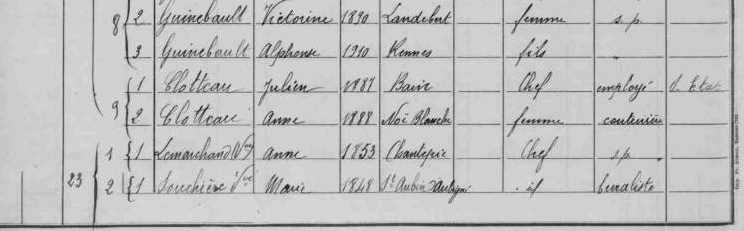 8 2 Guinebault Victorine 1890 Landebert femme s.p
3 Guinebault Alphonse 1910 Rennes fils "
1 Clotteau Julien 1887 Chef employé
9 2 Clotteau Anne 1888 Noë Blanche femme couturière
1 1 Lemarchand Vve Anne 1853 Chantepie Chef s.p
23 2 1 Vve Marie 1848 St Aubin d'Aubigné id buraliste